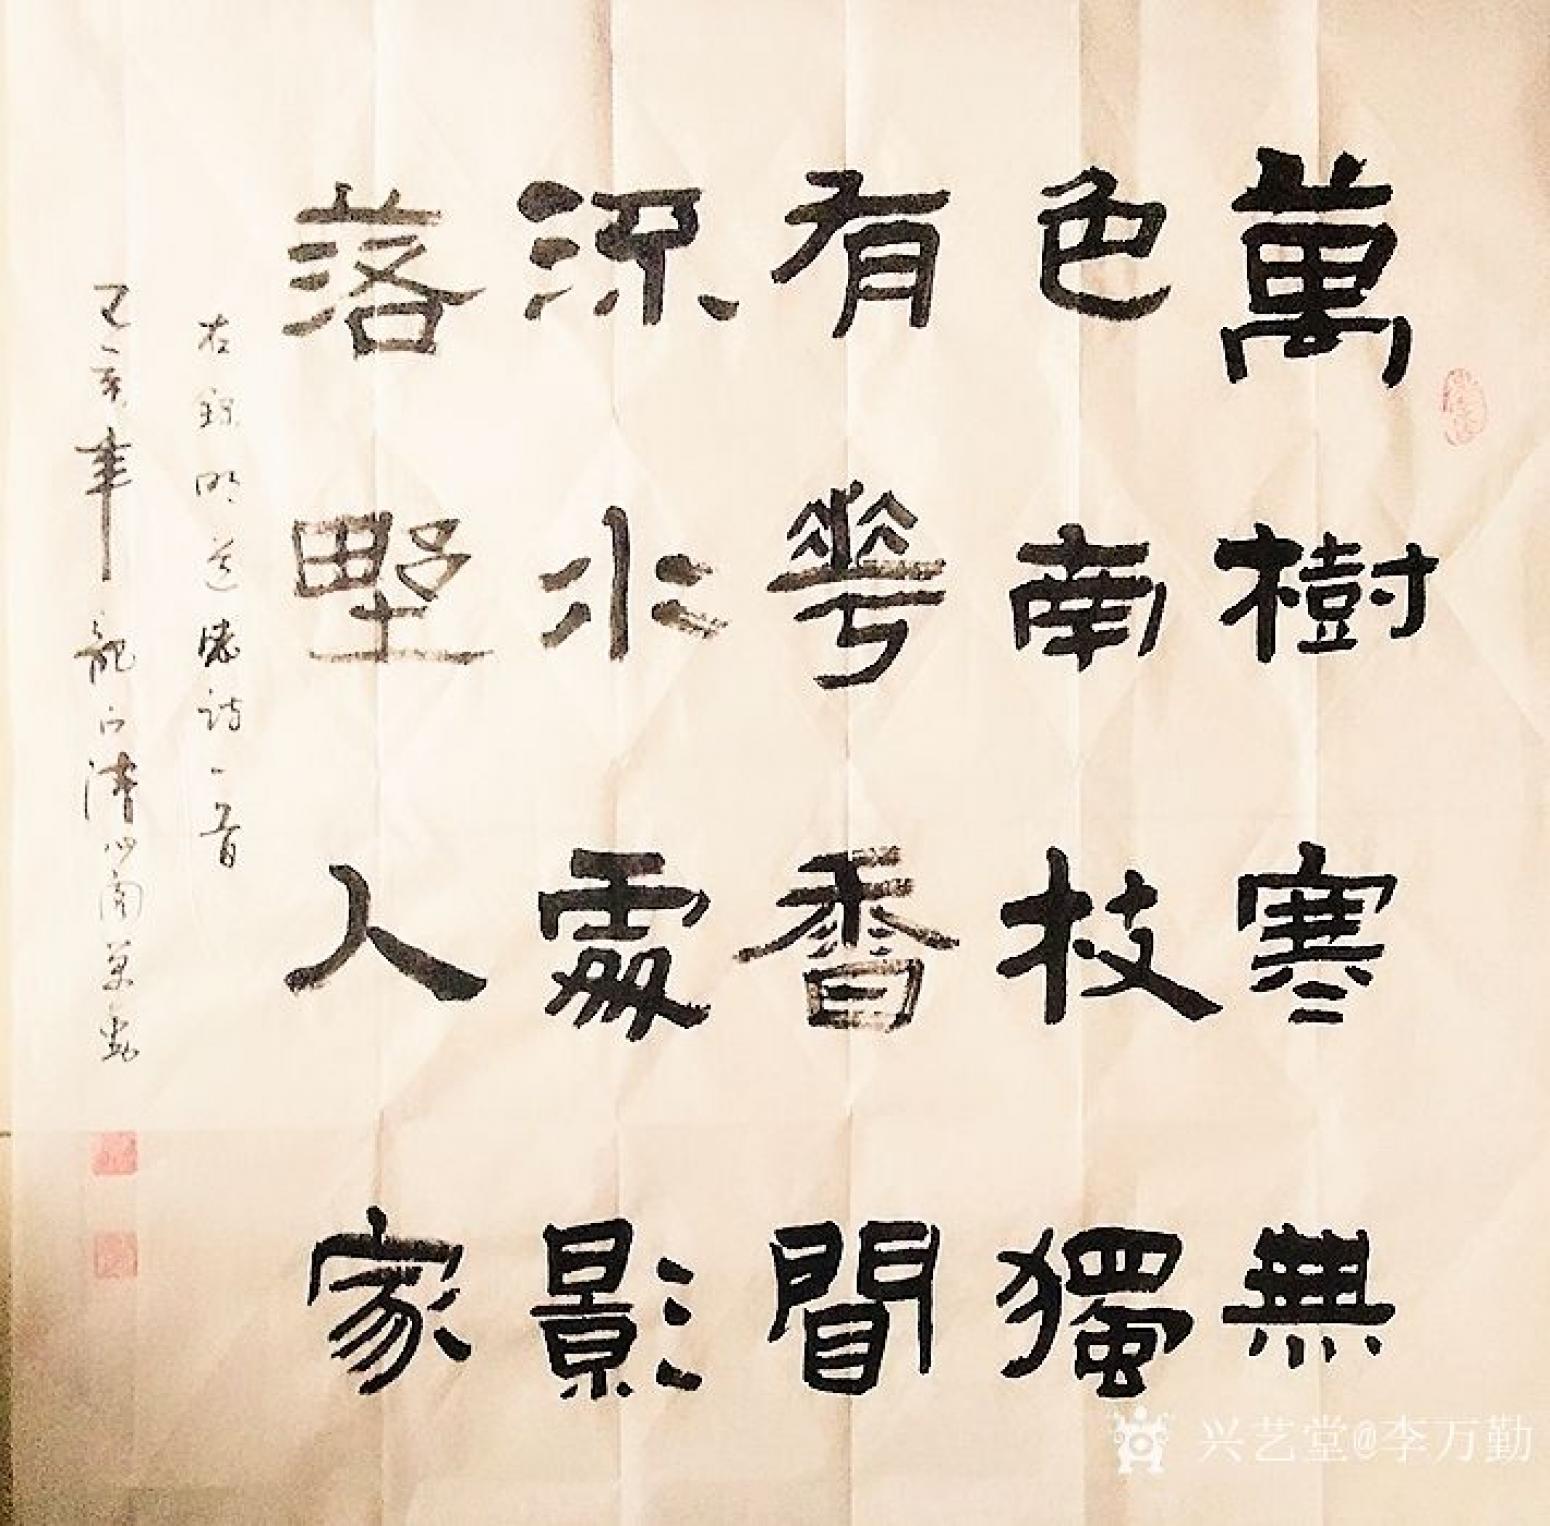 萬樹寒無
色南枝獨
有華香聞
流水處影
落野人家
右錄明道源詩一首
己亥年龍清心閣萬勤
兴艺堂@李万勤